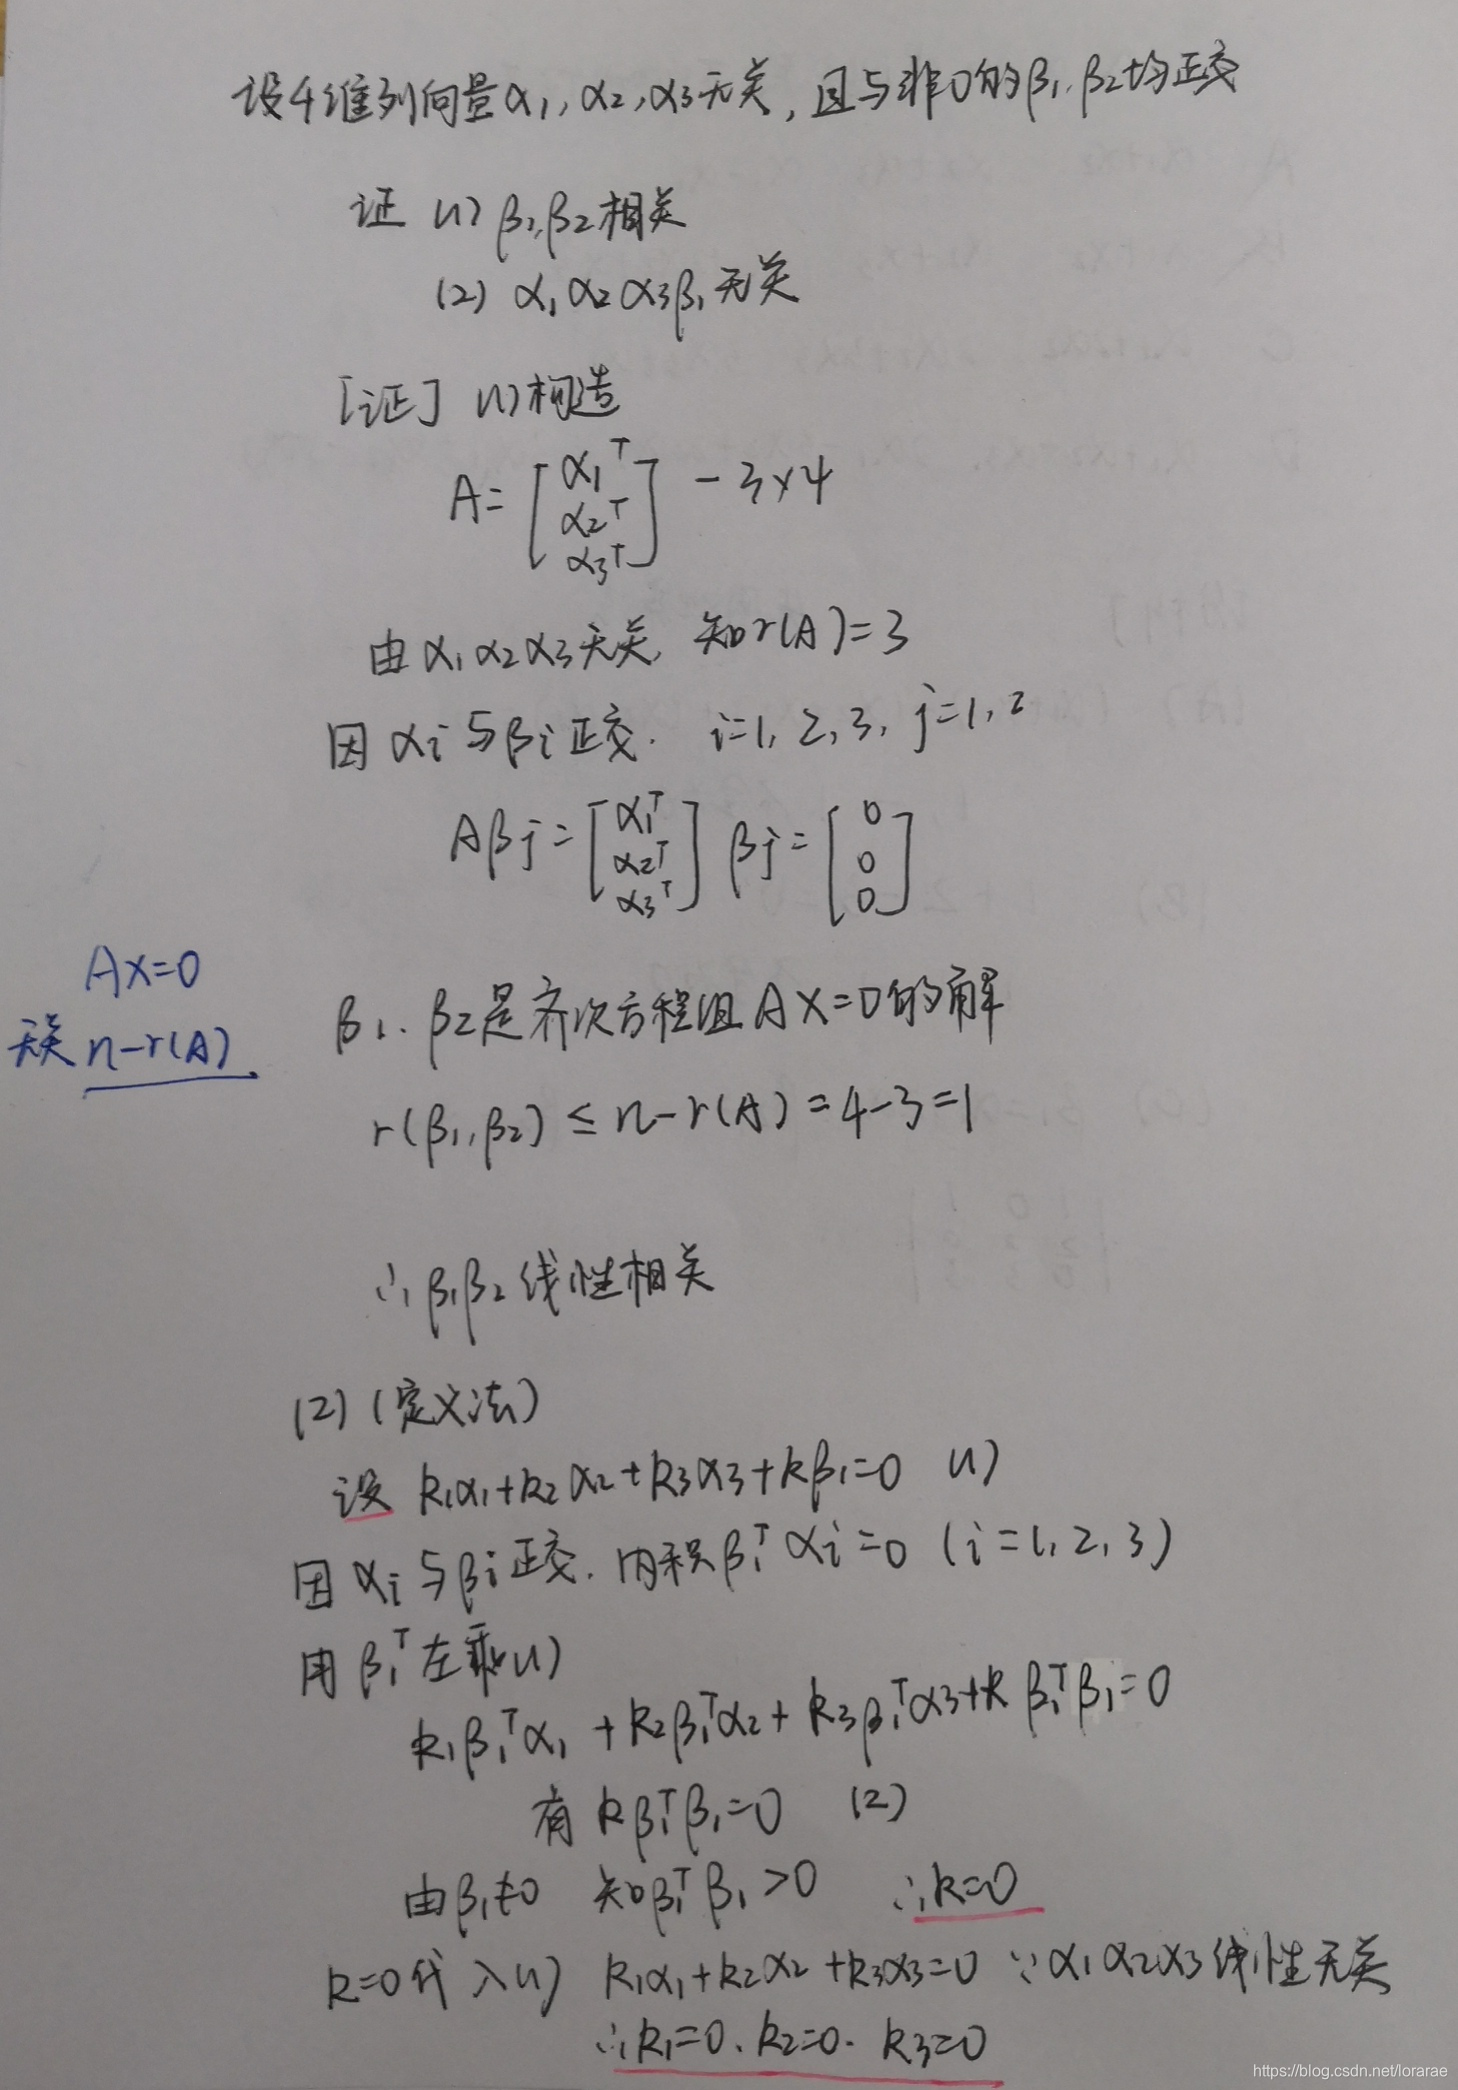 设4维列向量α1, α2, α3无关, 且与非0的β1, β2均正交
证 (1) β1, β2相关
(2) α1 α2 α3 β1 无关
[证] (1) 构造
A = [α1^T α2^T α3^T] - 3×4
由 α1 α2 α3 无关, 知 r(A) = 3
因 αi 与 βi 正交. i=1, 2, 3, j=1, 2
Aβj = [α1^T α2^T α3^T] βj = [0 0 0]
AX=0
无关 n-r(A)
β1. β2是齐次方程组 AX=0的解
r(β1, β2) ≤ n-r(A) = 4-3 = 1
∴ β1 β2 线性相关
(2) (定义法)
设 k1α1+k2α2+k3α3+kβ1=0 (1)
因 αi 与 βi 正交. 内积 β1^T αi = 0 (i=1, 2, 3)
用 β1^T 左乘(1)
k1β1^Tα1 + k2β1^Tα2 + k3β1^Tα3 + kβ1^Tβ1 = 0
有 kβ1^Tβ1=0 (2)
由β1≠0 知β1^Tβ1>0 ∴k=0
k=0代入(1) k1α1+k2α2+k3α3=0 ∵ α1 α2 α3 线性无关
∴k1=0. k2=0. k3=0
https://blog.csdn.net/lorarae